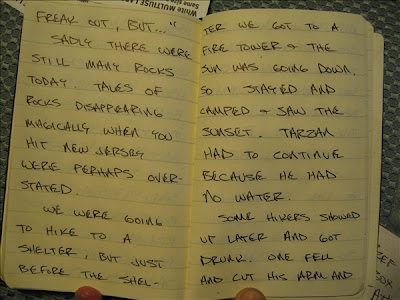 White MULTIUSE LAB
Same size
FREAK OUT, BUT..."
SADLY THERE WERE
STILL MANY ROCKS
TODAY. TALES OF
ROCKS DISAPPEARING
MAGICALLY WHEN YOU
HIT NEW JERSEY
WERE PERHAPS OVER-
STATED.
WE WERE GOING
TO HIKE TO A
SHELTER, BUT JUST
BEFORE THE SHEL-
TER WE GOT TO A
FIRE TOWER & THE
SUN WAS GOING DOWN.
SO I STAYED AND
CAMPED & SAW THE
SUNSET. TARZAN
HAD TO CONTINUE
BECAUSE HE HAD
NO WATER.
SOME HIKERS SHOWED
UP LATER AND GOT
DRUNK. ONE FELL
AND CUT HIS ARM AND